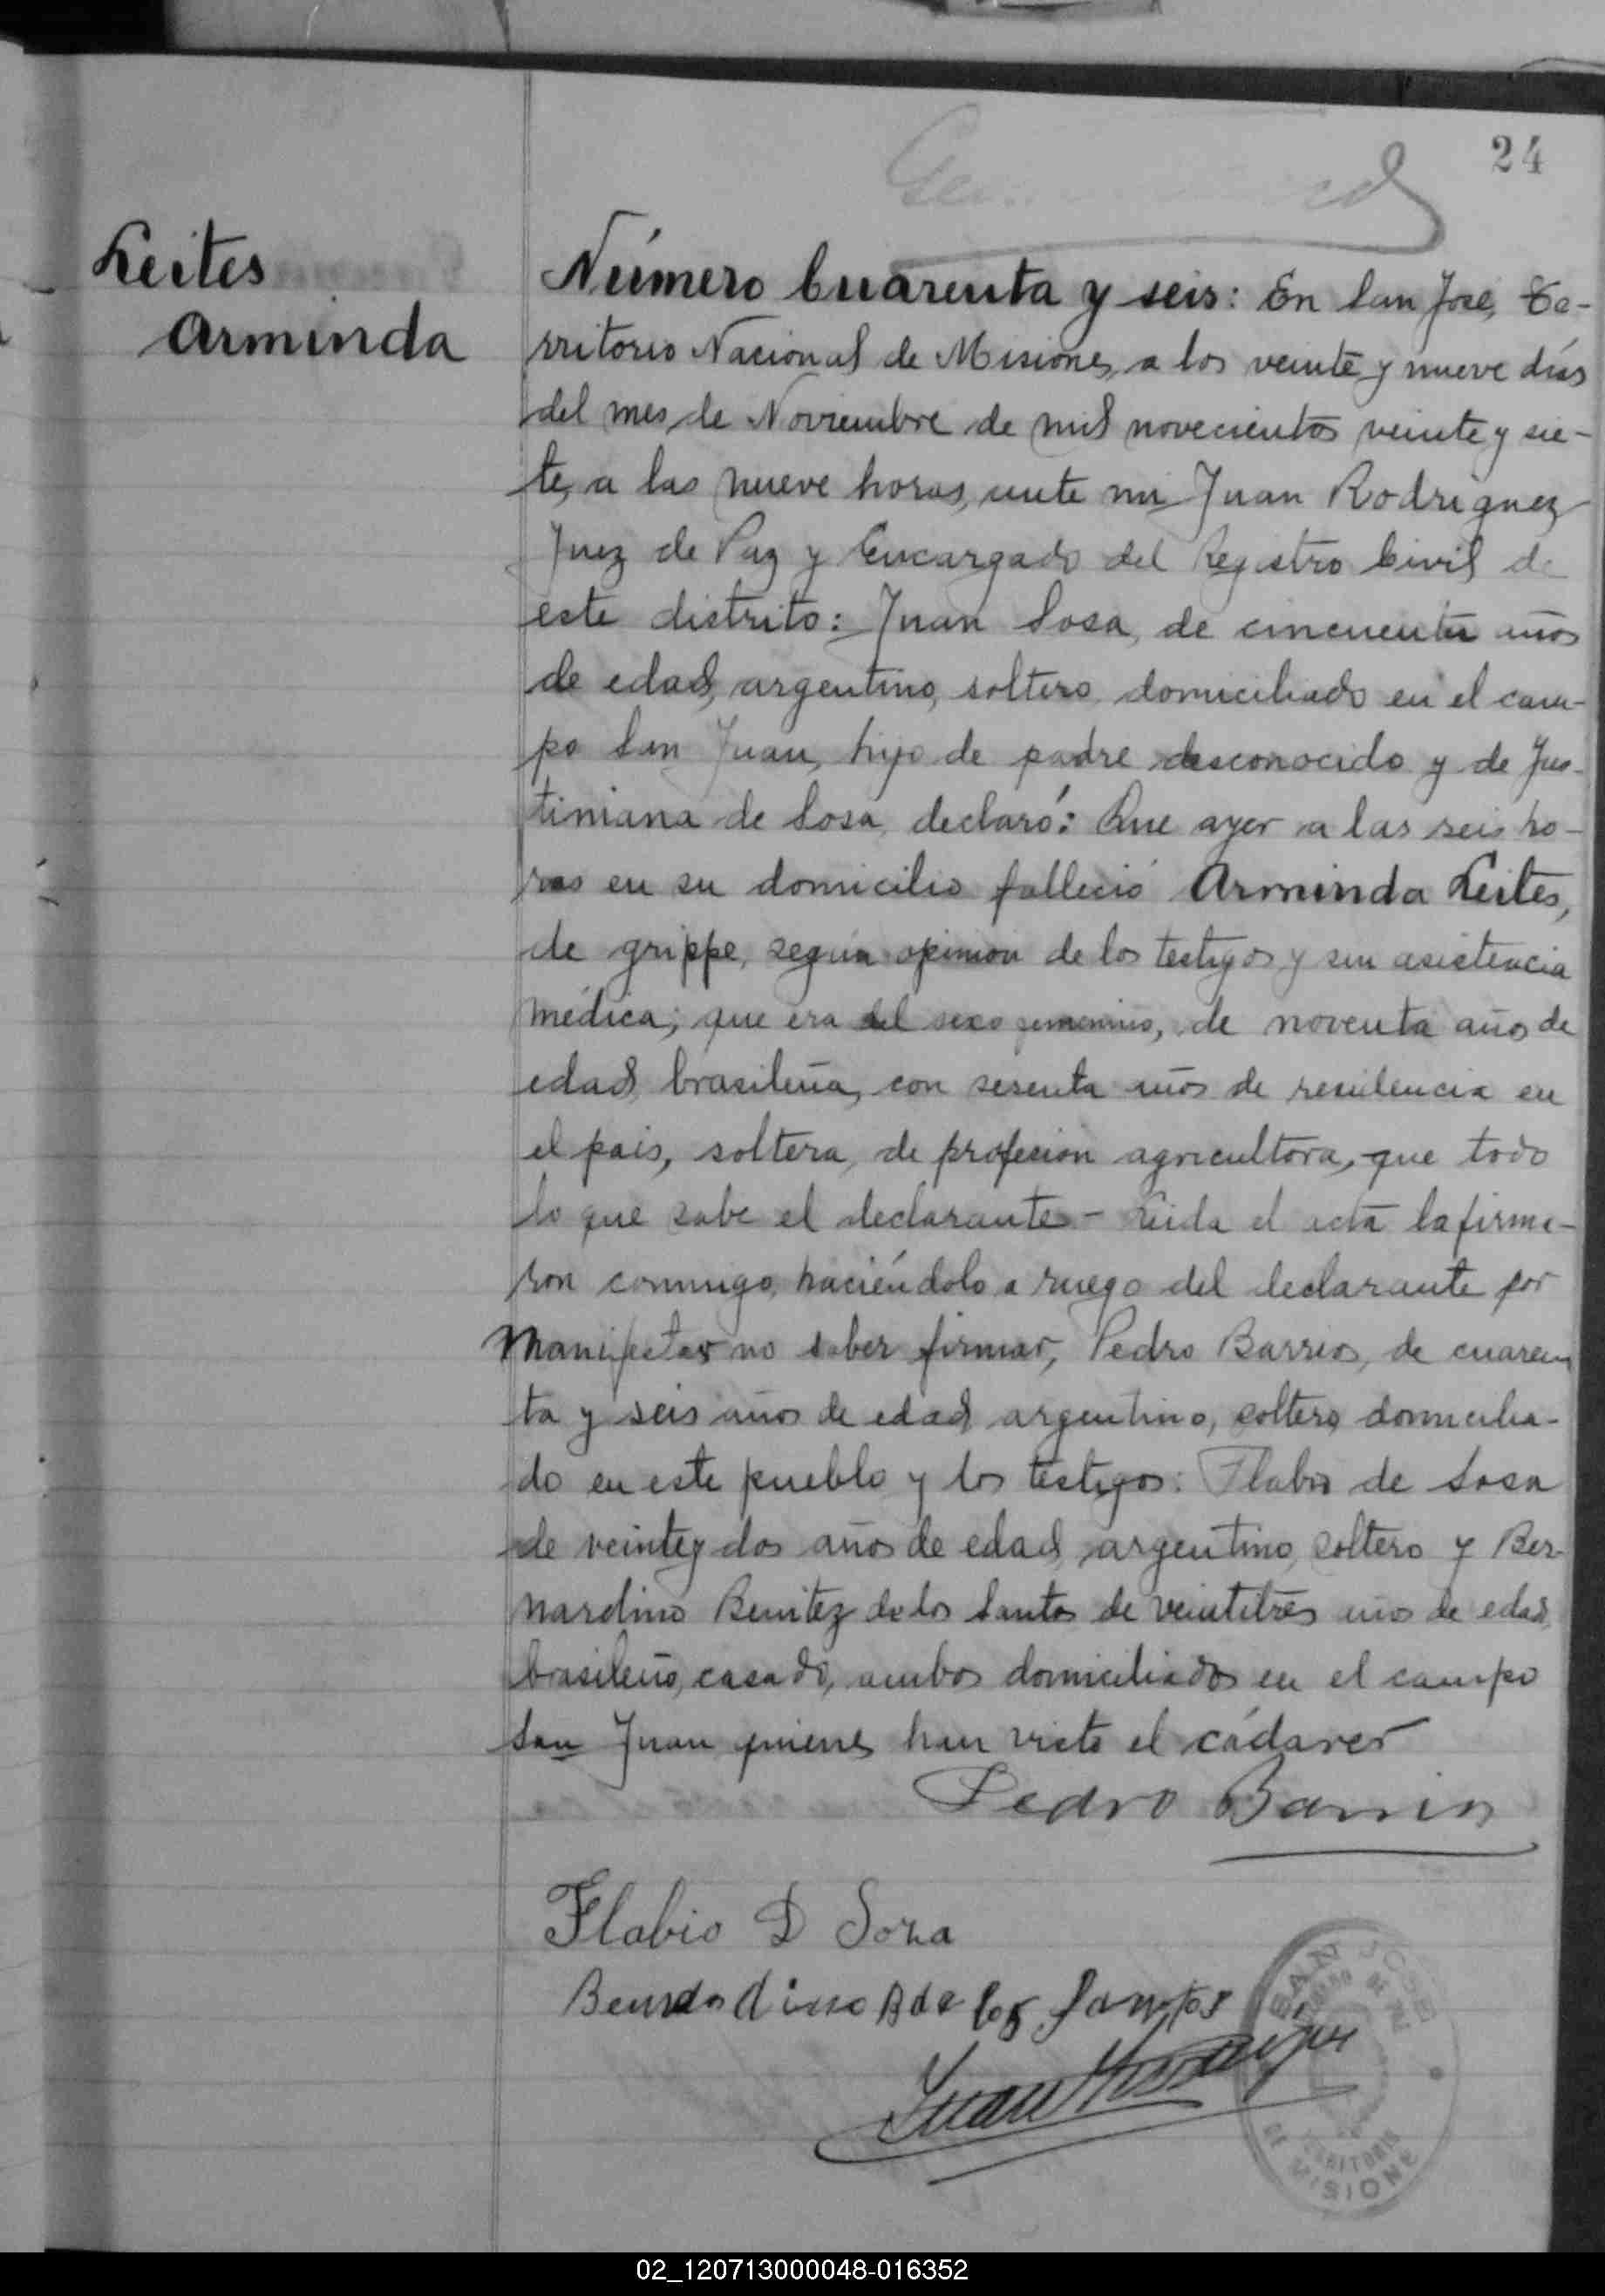 24
Leites
Arminda
Número Cuarenta y seis: En San José, Te-
rritorio Nacional de Misiones, a los veinte y nueve días
del mes de Noviembre de mil novecientos veinte y sie-
te, a las nueve horas, ante mi Juan Rodriguez
Juez de Paz y Encargado del Registro Civil de
este distrito: Juan Sosa, de cincuenta años
de edad, argentino, soltero, domiciliado en el cam-
po San Juan, hijo de padre desconocido y de Jus-
tiniana de Sosa, declaró: Que ayer a las seis ho-
ras en su domicilio falleció Arminda Leites,
de grippe, según opinion de los testigos y sin asistencia
médica; que era del sexo femenino, de noventa años de
edad, brasileña, con sesenta años de residencia en
el pais, soltera, de profesion agricultora, que todo
lo que sabe el declarante - Leida el acta la firma-
ron conmigo, haciéndolo a ruego del declarante por
manifestar no saber firmar, Pedro Barrios, de cuaren
ta y seis años de edad, argentino, soltero, domicilia-
do en este pueblo y los testigos: Flabio de Sosa
de veinte y dos años de edad, argentino, soltero y Ber-
nardino Benitez de los Santos de veintitres años de edad,
brasileño, casado, ambos domiciliados en el campo
San Juan quienes han visto el cádaver
Pedro Barrios
Flabio D Soza
B de los Santos
Juan Rodriguez
SAN JOSE
TERRITORIO
DE MISIONES
02_120713000048-016352